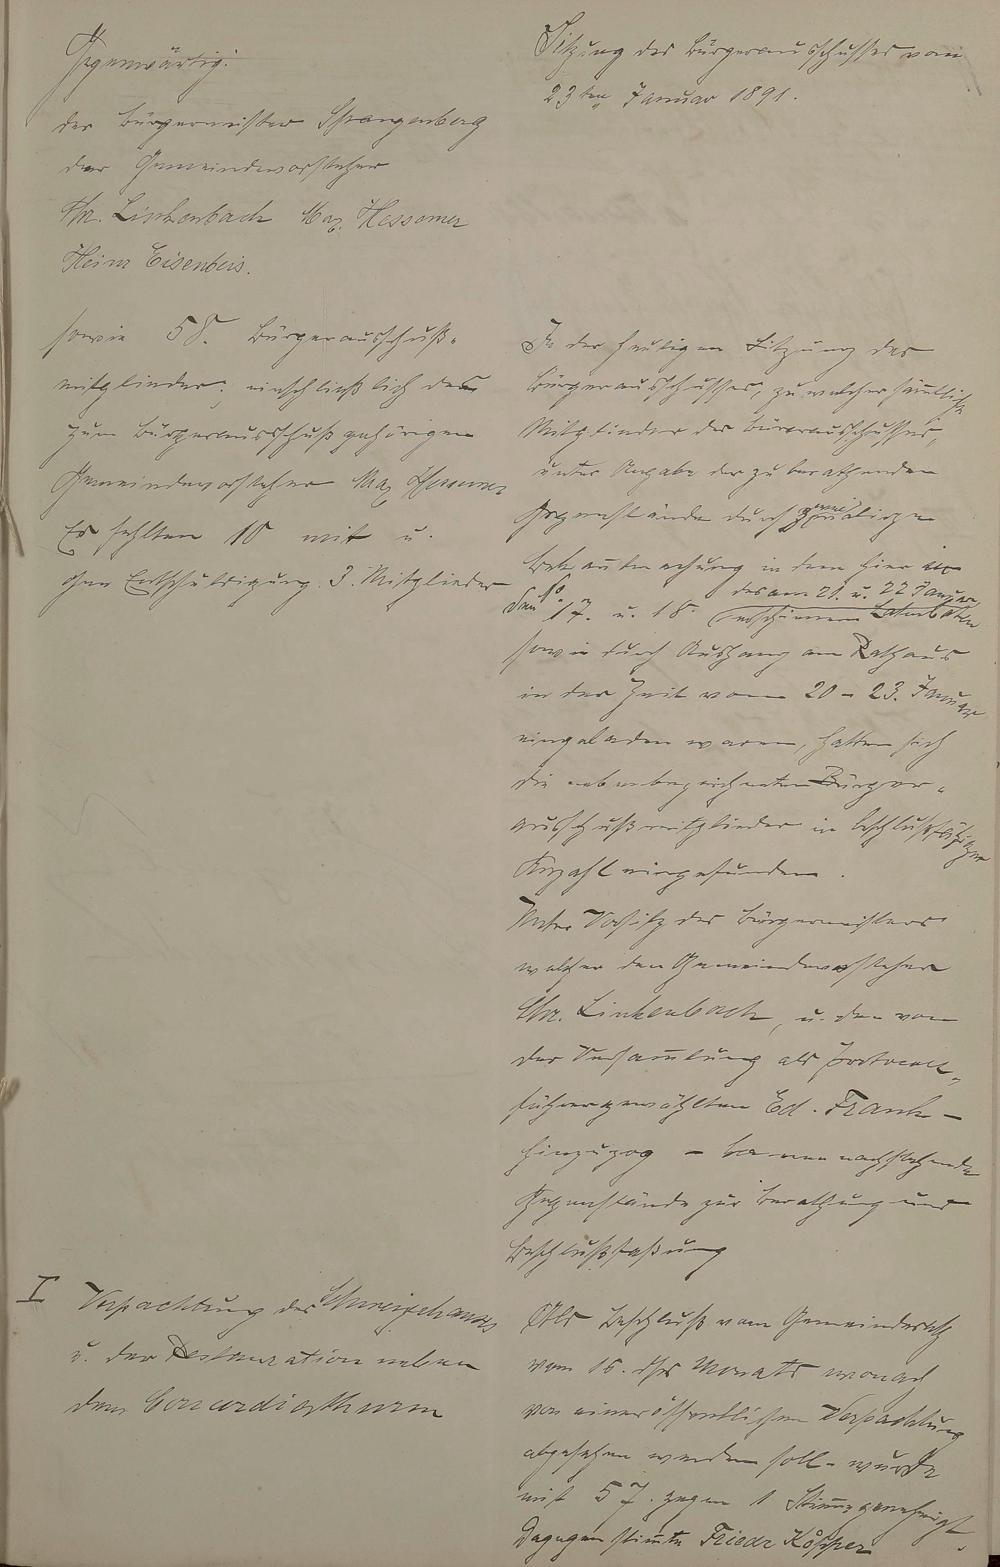 Gegenwärtig:
der Bürgermeister Spangenberg
der Gemeindevorsteher
Chr. Linkenbach Max Hessemer
Heinr Eisenbeis.
sowie 58. Bürgerausschuß-
mitglieder, einschließlich des
zum Bürgerausschuß gehörigen
Gemeindevorsteher Max Hessemer
Es fehlten 10 mit u.
ohne Entschuldigung 3. Mitglieder
I Verpachtung des Schweizerhauses
u. der Restauration neben
dem Concordiathurm
Sitzung des Bürgerausschusses vom
23ten Januar 1891.
In der heutigen Sitzung des
Bürgerausschusses, zu welcher sämtliche
Mitglieder des Bürerausschusses,
unter Angabe der zu berathenden
Gegenstände durch zweimalige
Bekanntmachung in dem hier
den 17. u. 18. des am 21. u. 22 Januar erschienenen
sowie durch Aushang am Rathaus
in der Zeit vom 20 – 23. Januar
eingeladen waren, hatten sich
die nebenbezeichneten Bürger-
ausschußmitglieder in beschlußfähiger
Anzahl eingefunden.
Unter Vorsitz des Bürgermeisters
welcher den Gemeindevorsteher
Chr. Linkenbach, u. den von
der Versammlung als Protocoll-
führer gewählten Ed. Frank –
hinzuzog – kamen nachstehende
Gegenstände zur Berathung und
Beschlußfaßung
Der Beschluß vom Gemeinderath
vom 16. dss Monats wonach
von einer öffentlichen Verpachtung
abgesehen werden soll – wurde
mit 57. gegen 1 Stimme genehmigt.
Dagegen stimte Friedr Köpper